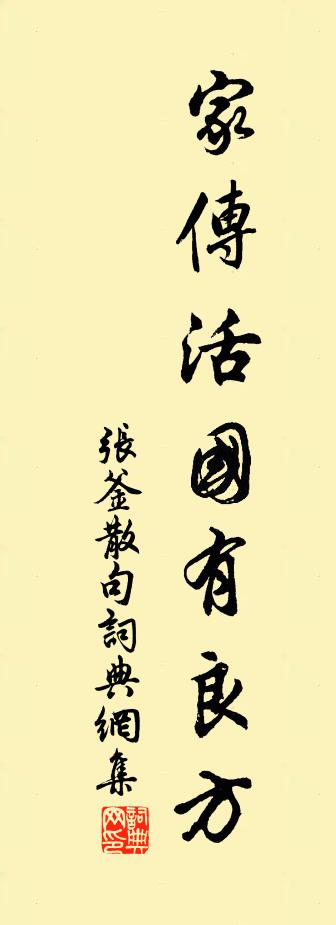 家傳活國有良方
張釜散句詞典網集
詞典網印